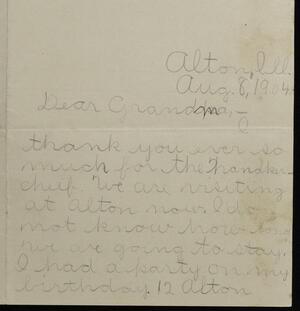 Alton, Ill.
Aug. 8, 1904.
Dear Grandma,—
thank you ever so
much for the handker-
chief. We are visiting
at Alton now. I do
not know how long
we are going to stay.
I had a party on my
birthday. 12 Alton